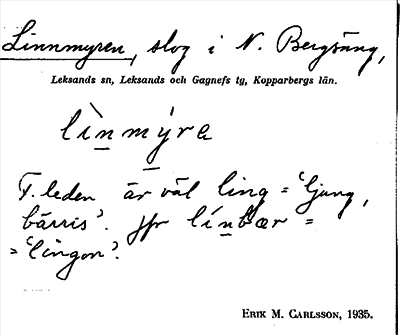 Linnmyren, slog i N. Bergsäng,
Leksands sn, Leksands och Gagnefs tg, Kopparbergs län.
lìn̲mỳra
F. leden är väl ling = 'ljung,
bärris'. Jfr lín̲bær =
= 'lingon'.
ERIK M. CARLSSON, 1935.